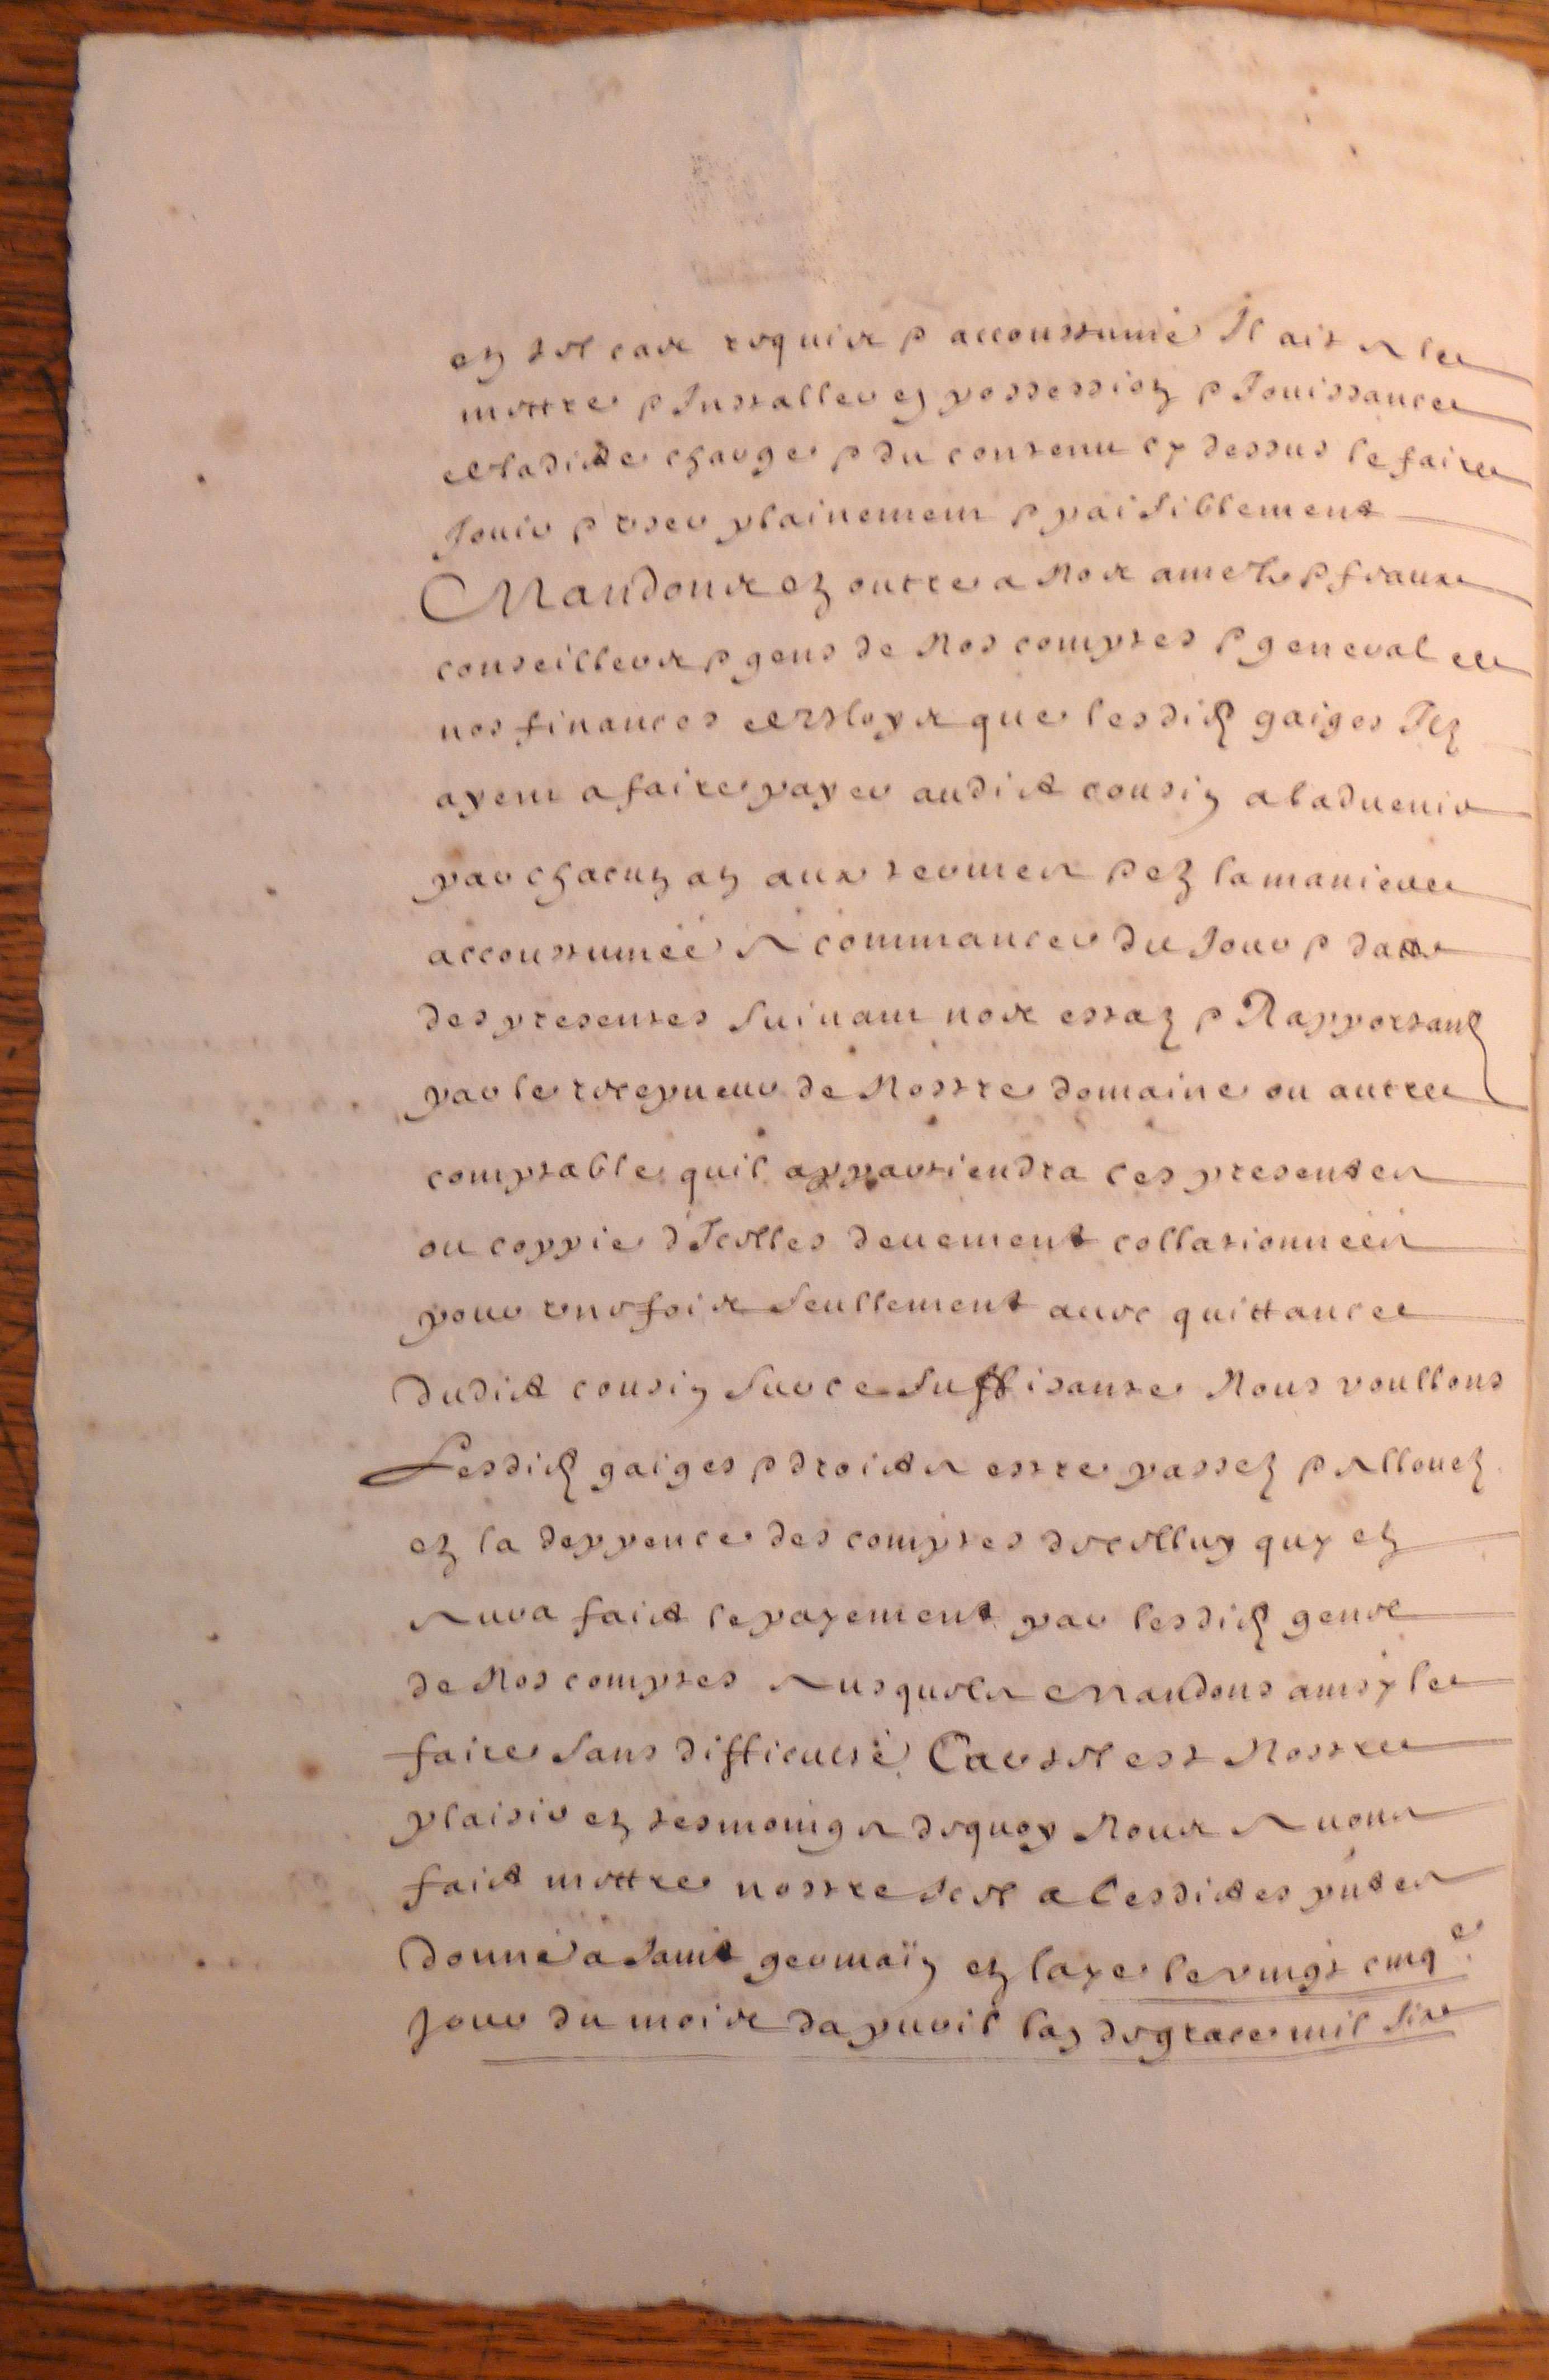 en tel cas requis et accoustumé Il ait a le
mettre et Installer en possession et Jouissance
de ladicte charge et du contenu cy dessus le faire
Jouir et user plainement et paisiblement
Mandons en outre a nos amez et feaux
conseillers et gens de nos comptes et general de
nos finances de que lesdictz gaiges Ilz
ayent a faire payer audict cousin a ladvenir
par chacun an aux termes et en la maniere
accoustumée a commancer du Jour et datte
des presentes suivant nos estaz et Rapportant
par le recepveur de nostre domaine ou autre
comptable quil appartiendra ces presentes
ou coppie d'Icelles deuement collationnéés
pour une fois seullement avec quittance
dudict cousin sur ce suffisante Nous voullons
Lesdictz gaiges et droictz estre passez et allouez
en la deppence des comptes de celluy quy en
aura faict le payement par lesdictz gens
de nos comptes ausquels mandons ainsy le
faire sans difficulté Car tel est nostre
plaisir en tesmoing de quoy nous avons
faict mettre nostre scel a cesdictes pntes
donné a saint germain en laye le vingt cinq.e
Jour du mois dapvril lan de grace mil six